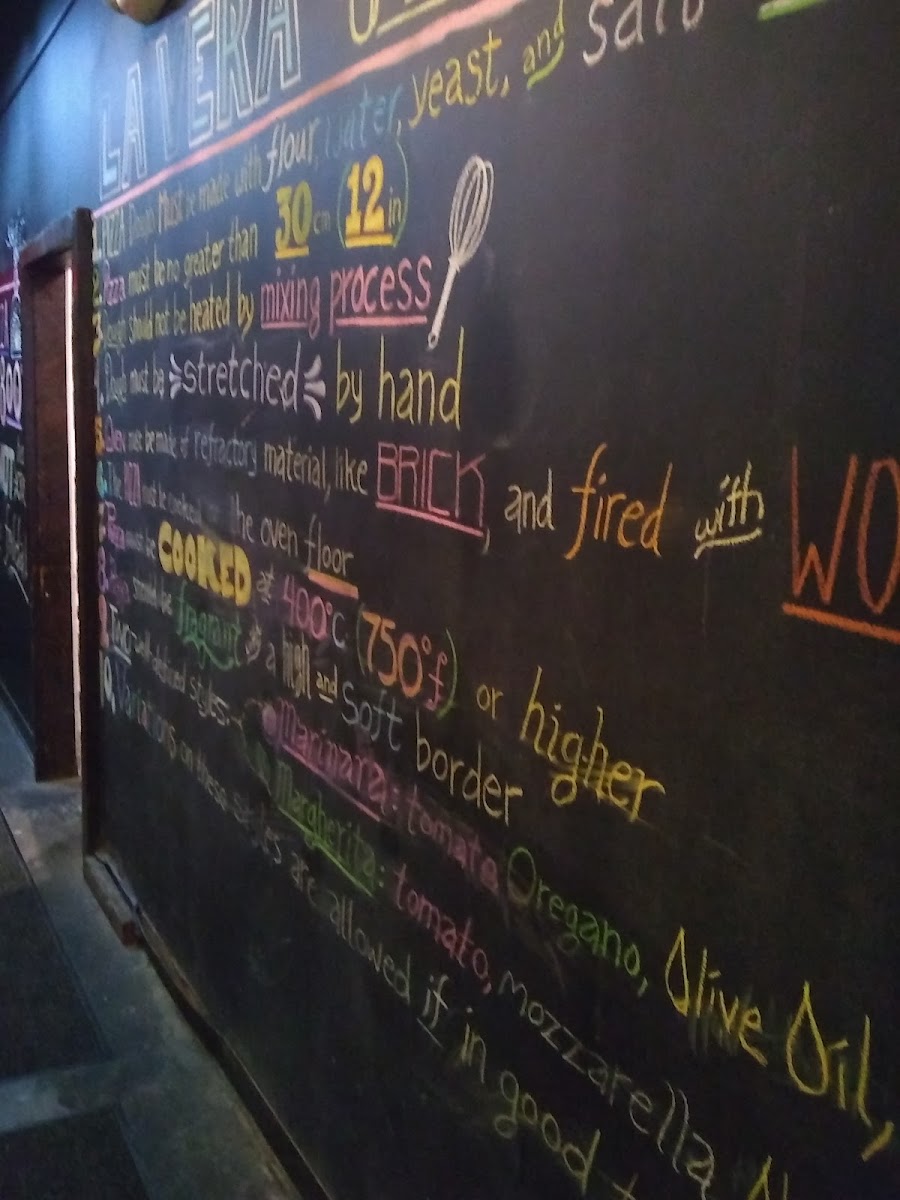 LA VERA
1. PIZZA Dough Must be made with flour, water, yeast, and salt
2. Pizza must be no greater than 30 cm (12 in)
3. Dough should not be heated by mixing process
4. Dough must be stretched by hand
5. Oven must be made of refractory material, like BRICK, and fired with WO
6. The PIZZA must be cooked the oven floor
7. Pizza must be COOKED at 400°C (750°f) or higher
8. should be fragrant a high and soft border
9. Two styles: Marinara: tomato, Oregano, Olive Oil,
Margherita: tomato, mozzarella
10. Variations on these styles are allowed if in good